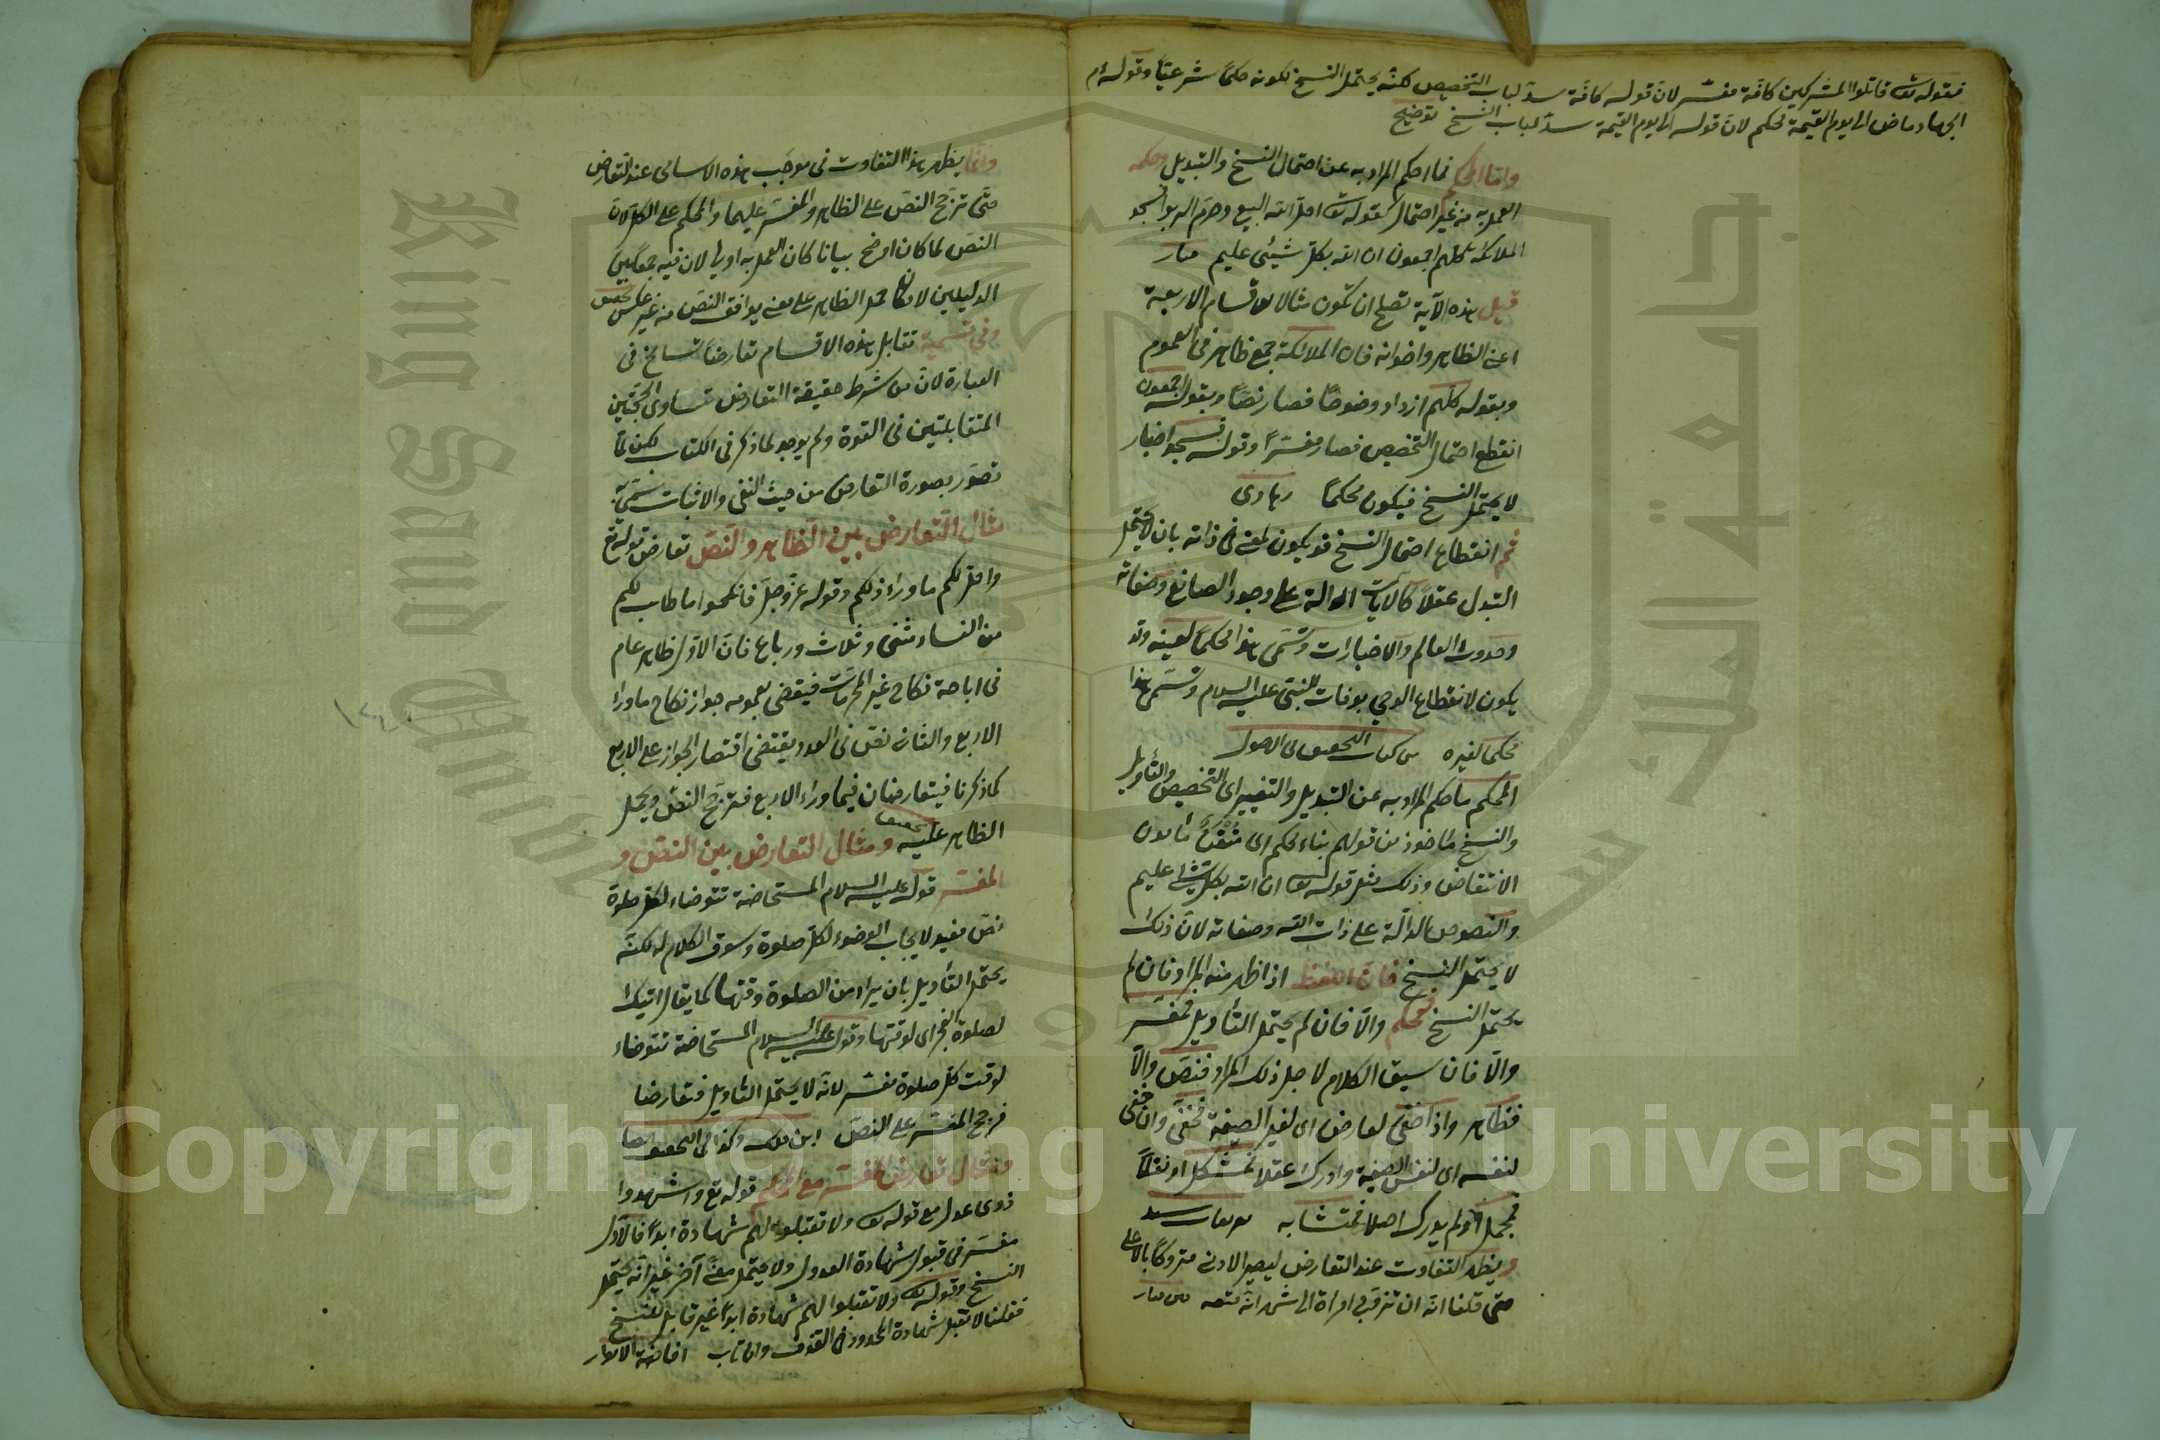 فقوله تع قاتلوا المشركين كافة مفسر لان قوله كافة سد لباب التخصيص لكنه يحتمل النسخ لكونه حكما شرعيا وقوله م
الجهاد ماض الى يوم القيمة محكم لان قوله الى يوم القيمة سد لباب النسخ توضيح
واما المحكم فما احكم المراد به عن احتمال النسخ والتبديل وحكمه
العمل به من غير احتمال كقوله تع احل الله البيع وحرم الربوا فسجد
الملائكة كلهم اجمعون ان الله بكل شيئ عليم منار
قيل هذه الآية تصلح ان تكون مثالا للاقسام الاربعة
اعنى الظاهر واخواته فان الملائكة جمع ظاهر فى العموم
وبقوله كلهم ازداد وضوحا فصار نصا وبقوله اجمعون
انقطع احتمال التخصيص فصار مفسرا وقوله فسجد اخبار
لا يحتمل النسخ فيكون محكما رهاوى
ثم انقطاع احتمال النسخ قد يكون لمعنى فى ذاته بان لا يحتمل
التبدل عقلا كالآيات الدالة على وجود الصانع وصفاته
وحدوث العالم والاخبارات وتسمى هذا محكما لعينه وقد
يكون لانقطاع الوحى بوفات النبى عليه السلام وتسمى هذا
محكما لغيره من كتاب التحقيق فى الاصول
المحكم ما احكم المراد به عن التبديل والتغيير اى التخصيص والتأويل
والنسخ مأخوذ من قولهم بناء محكم اى متقن مأمون
الانتقاض وذلك مثل قوله تع ان الله بكل شئ عليم
والنصوص الدالة على ذات الله وصفاته لان ذلك
لا يحتمل النسخ فان اللفظ اذا ظهر منه المراد فان لم
يحتمل النسخ فمحكم والا فان لم يحتمل التأويل فمفسر
والا فان سيق الكلام لاجل ذلك المراد فنص والا
فظاهر واذا خفى لعارض اى لغير الصيغة فخفى وان خفى
لنفسه اى لنفس الصيغة وادرك عقلا فمشكل او نقلا
فمجمل او لم يدرك اصلا فمتشابه تعريفات سيد
ويظهر التفاوت عند التعارض ليصير الادنى متروكا بالاعلى
حتى قلنا انه ان تزوج امرأة الى شهر انه متعه من منار
وانما يظهر هذا التفاوت فى موجب هذه الاسامى عند التعارض
حتى ترجح النص على الظاهر والمفسر عليهما والمحكم على الكل لان
النص لما كان اوضح بيانا كان العمل به اولى لان فيه جمعا بين
الدليلين لامكان حمل الظاهر على معنى يوافق النص من غير عكس تحقيق
وفى تسمية تقابل هذه الاقسام تعارضا تسامح فى
العبارة لان من شرط حقيقة التعارض تساوى الحجتين
المتقابلتين فى القوة ولم يوجد لما ذكر فى الكتاب لكن لما
تصور بصورة التعارض من حيث النفى والاثبات سمى به
مثال التعارض بين الظاهر والنص تعارض قوله تع
واحل لكم ما وراء ذلكم وقوله عز وجل فانكحوا ما طاب لكم
من النساء مثنى وثلاث ورباع فان الاول ظاهر عام
فى اباحة نكاح غير المحرمات فيقضى بعمومه جواز نكاح ما وراء
الاربع والثانى نص فى العدد يقتضى اقتصار الجواز على الاربع
كما ذكرنا فيتعارضان فيما وراء الاربع فترجح النص ويحمل
الظاهر عليه تحقيق ومثال التعارض بين النص و
المفسر قوله عليه السلام المستحاضة تتوضاء لكل صلوة
نص مفيد لايجاب الوضوء لكل صلوة وسوق الكلام له لكنه
يحتمل التأويل بان يراد من الصلوة وقتها كما يقال اتيك
لصلوة الفجر اى لوقتها وقوله عليه السلام المستحاضة تتوضاء
لوقت كل صلوة مفسر لانه لا يحتمل التأويل فتعارضا
فرجح المفسر على النص ابن ملك وكذا فى التحقيق ايضا
ومثال تعارض المفسر مع المحكم قوله تع واشهدوا
ذوى عدل مع قوله تع ولا تقبلوا لهم شهادة ابدا فالاول
مفسر فى قبول شهادة العدول ولا يحتمل معنى آخر غير انه يحتمل
النسخ وقوله تع ولا تقبلوا لهم شهادة ابدا غير قابل للنسخ
فقلنا لا تقبل شهادة المحدود فى القذف وان تاب افاضة الانوار
King Saud University
جامعة الملك سعود
1957
Copyright © King Saud University